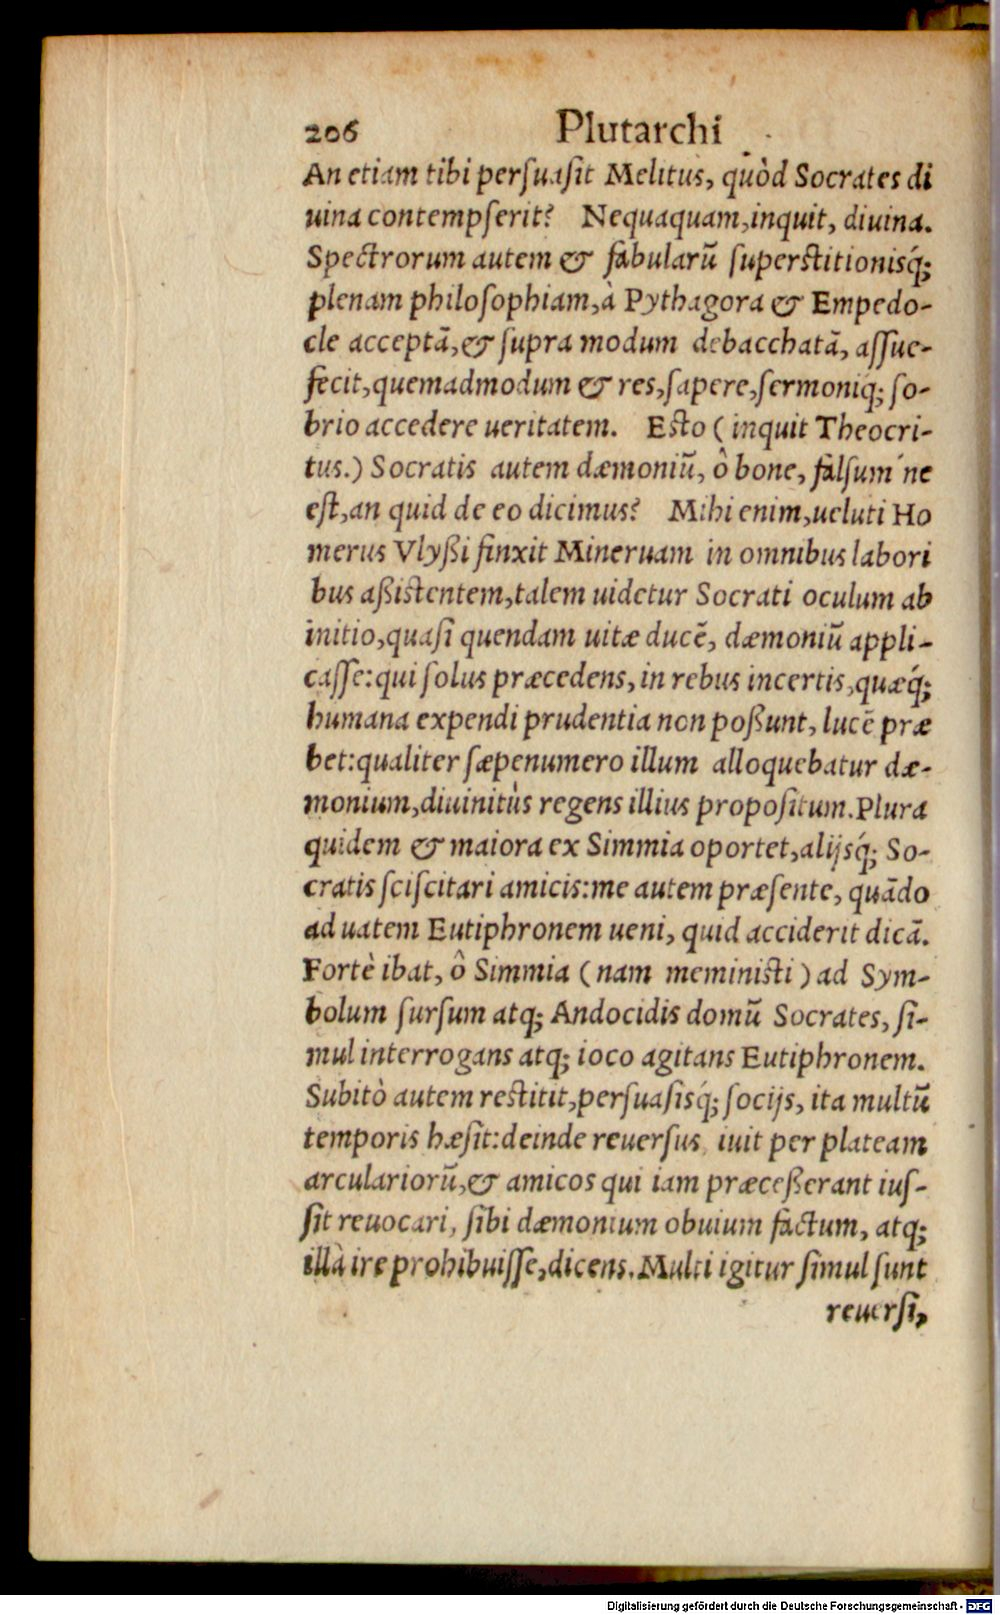 206 Plutarchi
An etiam tibi persuasit Melitus, quòd Socrates di
uina contempserit? Nequaquam, inquit, diuina.
Spectrorum autem & fabularū superstitionisq́;
plenam philosophiam, à Pythagora & Empedo-
cle acceptā, & supra modum debacchatā, assue-
fecit, quemadmodum & res, sapere, sermoniq́; so-
brio accedere ueritatem. Esto ( inquit Theocri-
tus.) Socratis autem dæmoniū, ô bone, falsum´ne
est, an quid de eo dicimus? Mihi enim, ueluti Ho
merus Vlyßi finxit Mineruam in omnibus labori
bus aßistentem, talem uidetur Socrati oculum ab
initio, quasi quendam uitæ ducē, dæmoniū appli-
casse: qui solus præcedens, in rebus incertis, quæq́;
humana expendi prudentia non poßunt, lucē præ
bet: qualiter sæpenumero illum alloquebatur dæ-
monium, diuinitùs regens illius propositum. Plura
quidem & maiora ex Simmia oportet, alijsq́; So-
cratis sciscitari amicis: me autem præsente, quādo
ad uatem Eutiphronem ueni, quid acciderit dicā.
Fortè ibat, ô Simmia ( nam meministi ) ad Sym-
bolum sursum atq; Andocidis domū Socrates, si-
mul interrogans atq; ioco agitans Eutiphronem.
Subitò autem restitit, persuasisq́; socijs, ita multū
temporis hæsit: deinde reuersus, iuit per plateam
arculariorū, & amicos qui iam præceßerant ius-
sit reuocari, sibi dæmonium obuium factum, atq;
illà ire prohibuisse, dicens. Multi igitur simul sunt
reuersi,
Digitalisierung gefördert durch die Deutsche Forschungsgemeinschaft - DFG